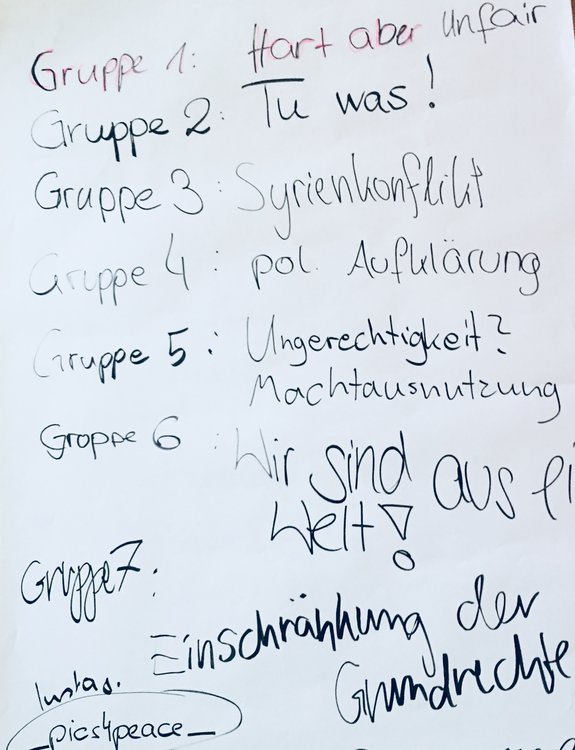 Gruppe 1: Hart aber unfair
Gruppe 2: Tu was!
Gruppe 3: Syrienkonflikt
Gruppe 4: pol. Aufklärung
Gruppe 5: Ungerechtigkeit?
Machtausnutzung
Gruppe 6: Wir sind aus
Welt!
Gruppe 7:
Einschränkung der
Grundrechte
Instag.
_pics4peace_